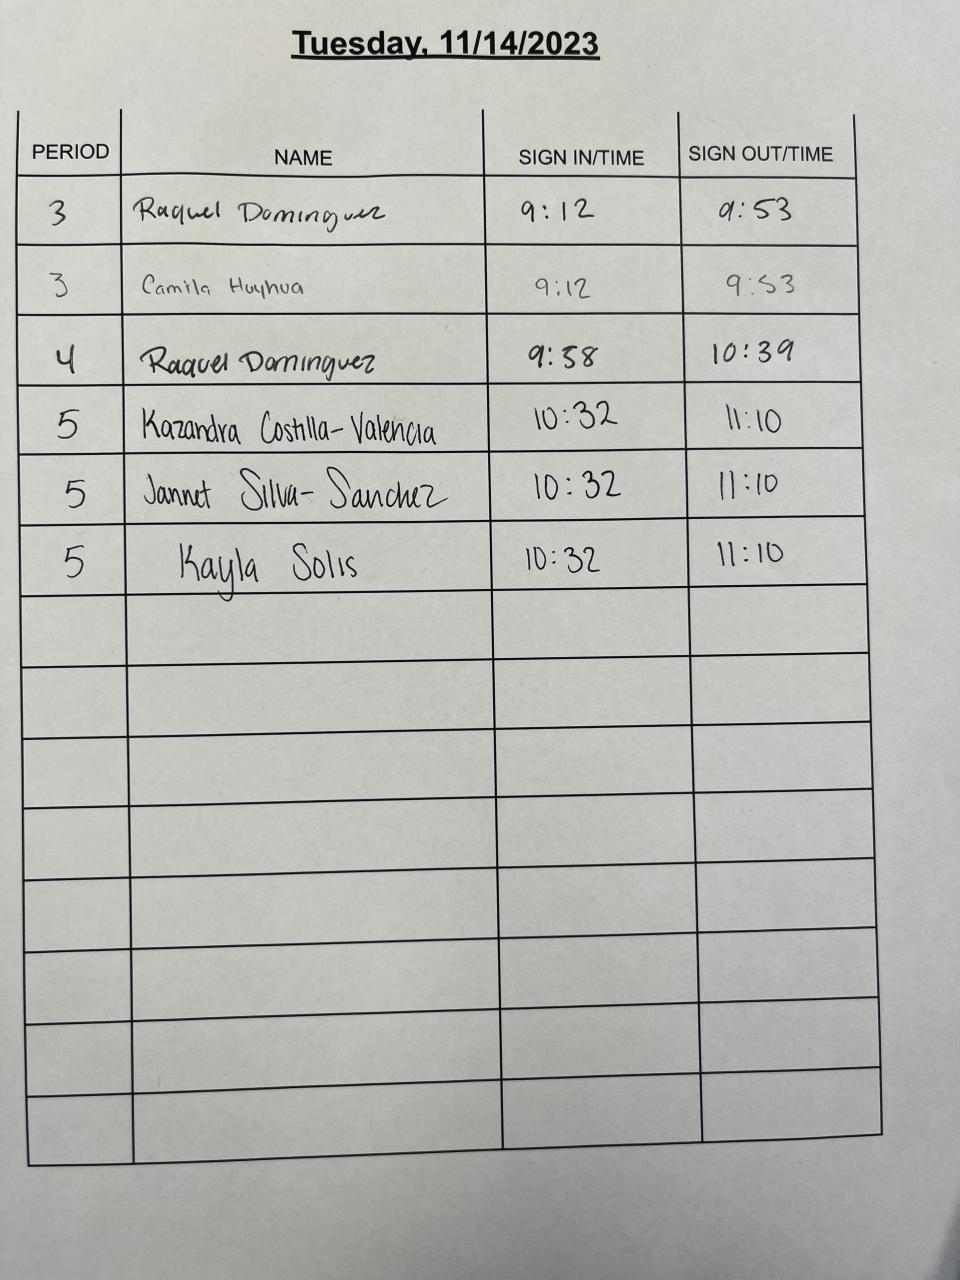 Tuesday, 11/14/2023
PERIOD NAME SIGN IN/TIME SIGN OUT/TIME
3 Raquel Dominguez 9:12 9:53
3 Camila Huyhua 9:12 9:53
4 Raquel Dominguez 9:58 10:39
5 Kazandra Costilla-Valencia 10:32 11:10
5 Jannet Silva-Sanchez 10:32 11:10
5 Kayla Solis 10:32 11:10